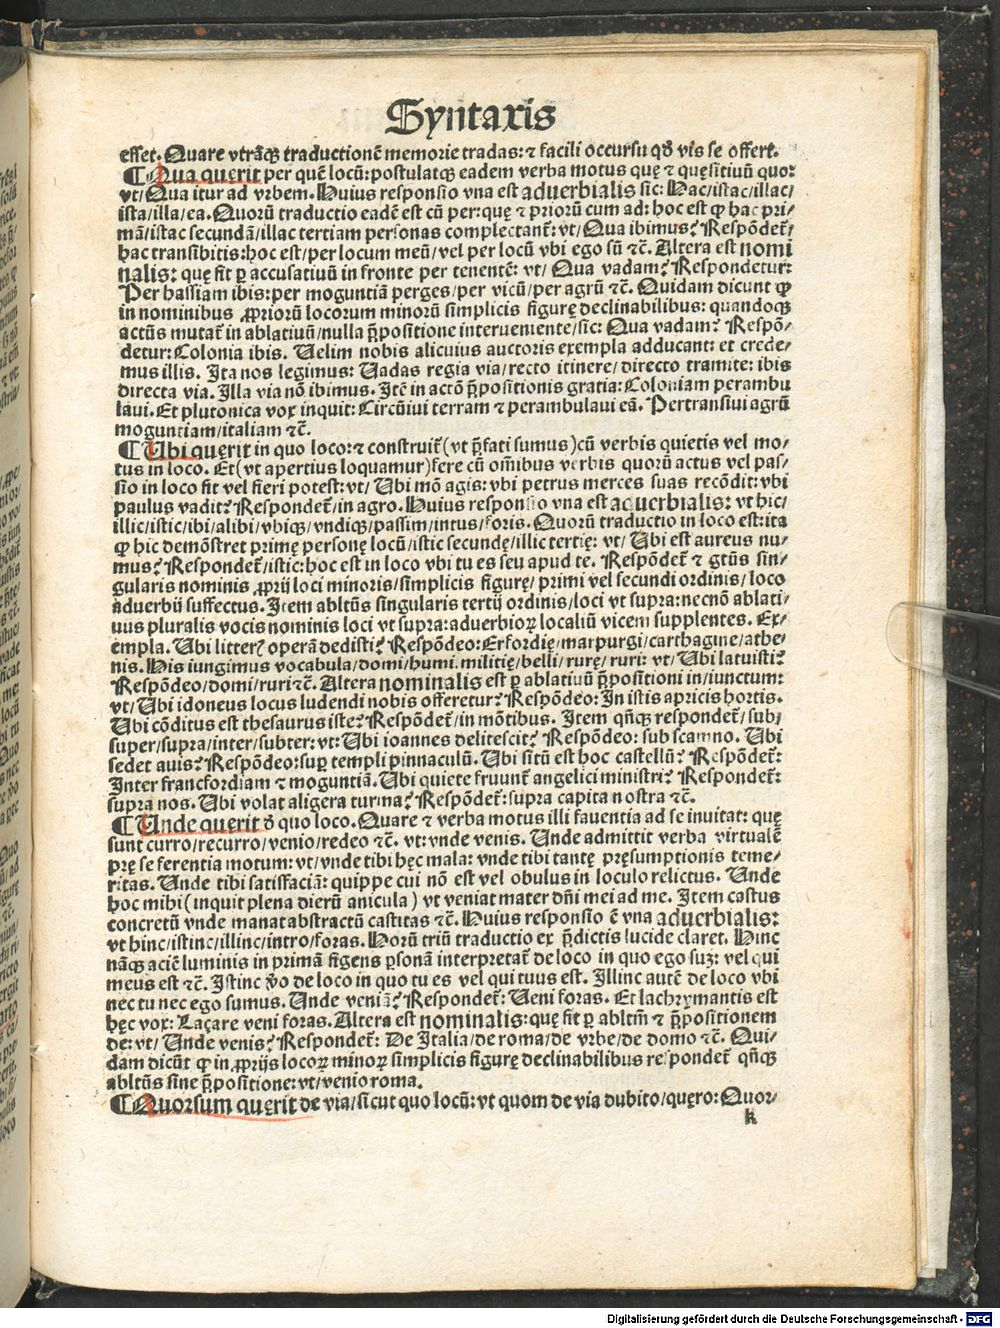 Syntaxis
esset. Quare vtrãqꝫ traductionẽ memorie tradas: ⁊ facili occursu qđ vis se offert.
¶ Qua querit per quẽ locũ: postulatqꝫ eadem verba motus quę ⁊ quęsitiuũ quo:
vt/ Qua itur ad vrbem. Huius responsio vna est aduerbialis sic: Hac/istac/illac/
ista/illa/ea. Quorũ traductio eadẽ est cũ per: quę ⁊ priorũ cum ad: hoc est ꝙ hac pri/
mã/istac secundã/illac tertiam personas complectant᷑: vt/ Qua ibimus? Respõdet᷑/
hac transibitis: hoc est/per locum meũ/vel per locũ vbi ego sũ ⁊c̃. Altera est nomi
nalis: quę fit ꝑ accusatiuũ in fronte per tenentẽ: vt/ Qua vadam? Respondetur:
Per hassiam ibis: per moguntiã perges/per vicũ/per agrũ ⁊c̃. Quidam dicunt ꝙ
in nominibus ꝓpriorũ locorum minorũ simplicis figurę declinabilibus: quandoqꝫ
actũs mutat᷑ in ablatiuũ/nulla p̃positione interueniente/sic: Qua vadam? Respõ/
detur: Colonia ibis. Uelim nobis alicuius auctoris exempla adducant: et crede/
mus illis. Ita nos legimus: Uadas regia via/recto itinere/directo tramite: ibis
directa via. Illa via nõ ibimus. Itẽ in actõ p̃positionis gratia: Coloniam perambu
laui. Et plutonica vox inquit: Circũiui terram ⁊ perambulaui eã. Pertransiui agrũ
moguntiam/italiam ⁊c̃.
¶ Ubi querit in quo loco: ⁊ construit᷑ (vt p̃fati sumus) cũ verbis quietis vel mo/
tus in loco. Et (vt apertius loquamur) fere cũ om̃ibus verbis quorũ actus vel pas/
sio in loco fit vel fieri potest: vt/ Ubi mõ agis: vbi petrus merces suas recõdit: vbi
paulus vadit? Respondet᷑/in agro. Huius responsio vna est aduerbialis: vt hic/
illic/istic/ibi/alibi/vbiqꝫ/vndiqꝫ/passim/intus/foris. Quorũ traductio in loco est: ita
ꝙ hic demõstret primę personę locũ/istic secundę/illic tertię: vt/ Ubi est aureus nu/
mus? Respondet᷑/istic: hoc est in loco vbi tu es seu apud te. Respõdet᷑ ⁊ gtũs sin/
gularis nominis ꝓprij loci minoris/simplicis figurę/ primi vel secundi ordinis/ loco
aduerbij suffectus. Item abltũs singularis tertij ordinis/loci vt supra: necnõ ablati/
uus pluralis vocis nominis loci vt supra: aduerbioꝝ localiũ vicem supplentes. Ex/
empla. Ubi litteꝝ operã dedisti? Respõdeo: Erfordię/marpurgi/carthagine/athe/
nis. His iungimus vocabula/domi/humi. militię/belli/rurę/ruri: vt/ Ubi latuisti?
Respõdeo/domi/ruri ⁊c̃. Altera nominalis est ꝑ ablatiuũ p̃positioni in/iunctum:
vt/ Ubi idoneus locus ludendi nobis offeretur? Respõdeo: In istis apricis hortis.
Ubi cõditus est thesaurus iste? Respõdet᷑/in mõtibus. Item qñqꝫ respondet᷑/sub/
super/supra/inter/subter: vt: Ubi ioannes delitescit? Respõdeo: sub scamno. Ubi
sedet auis? Respõdeo: suꝑ templi pinnaculũ. Ubi sitũ est hoc castellũ? Respõdet᷑:
Inter francfordiam ⁊ moguntiã. Ubi quiete fruunt᷑ angelici ministri? Respondet᷑:
supra nos. Ubi volat aligera turma? Respõdet᷑: supra capita nostra ⁊c̃.
¶ Unde querit đ quo loco. Quare ⁊ verba motus illi fauentia ad se inuitat: quę
sunt curro/recurro/venio/redeo ⁊c̃. vt: vnde venis. Unde admittit verba virtualẽ
prę se ferentia motum: vt/ vnde tibi hęc mala: vnde tibi tantę pręsumptionis teme/
ritas. Unde tibi satisfaciã: quippe cui nõ est vel obulus in loculo relictus. Unde
hoc mihi (inquit plena dierũ anicula) vt veniat mater dñi mei ad me. Item castus
concretũ vnde manat abstractũ castitas ⁊c̃. Huius responsio ẽ vna aduerbialis:
vt hinc/istinc/illinc/intro/foras. Horũ triũ traductio ex p̃dictis lucide claret. Hinc
nãqꝫ aciẽ luminis in primã figens ꝑsonã interpretat᷑ de loco in quo ego suꝫ: vel qui
meus est ⁊c̃. Istinc ṽo de loco in quo tu es vel qui tuus est. Illinc autẽ de loco vbi
nec tu nec ego sumus. Unde veniã? Respondet᷑: Ueni foras. Et lachrymantis est
hęc vox: Laçare veni foras. Altera est nominalis: quę fit ꝑ abltm̃ ⁊ p̃positionem
de: vt/ Unde venis? Respondet᷑: De Italia/de roma/de vrbe/de domo ⁊c̃. Qui/
dam dicũt ꝙ in ꝓprijs locoꝝ minoꝝ simplicis figurę declinabilibus respondet᷑ qñqꝫ
abltũs sine p̃positione: vt/ venio roma.
¶ Quorsum querit de via/sicut quo locũ: vt quom de via dubito/quęro: Quor/
k
Digitalisierung gefördert durch die Deutsche Forschungsgemeinschaft - DFG